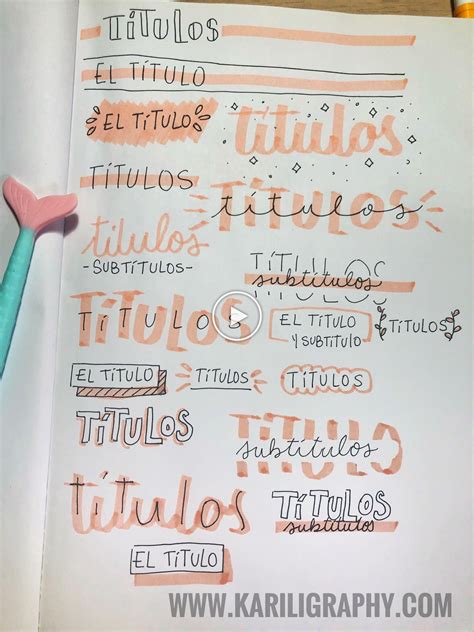 TÍTULOS
EL TÍTULO
EL TÍTULO
títulos
TÍTULOS
TÍTULOS
títulos
titulos
-SUBTÍTULOS-
TÍTULOS
subtítulos
TÍTULOS
TÍTULOS
EL TÍTULO
Y SUBTITULO
TÍTULOS
EL TÍTULO
TÍTULOS
TÍTULOS
TÍTULOS
TÍTULO
subtítulos
títulos
TÍTULOS
subtítulos
EL TÍTULO
WWW.KARILIGRAPHY.COM